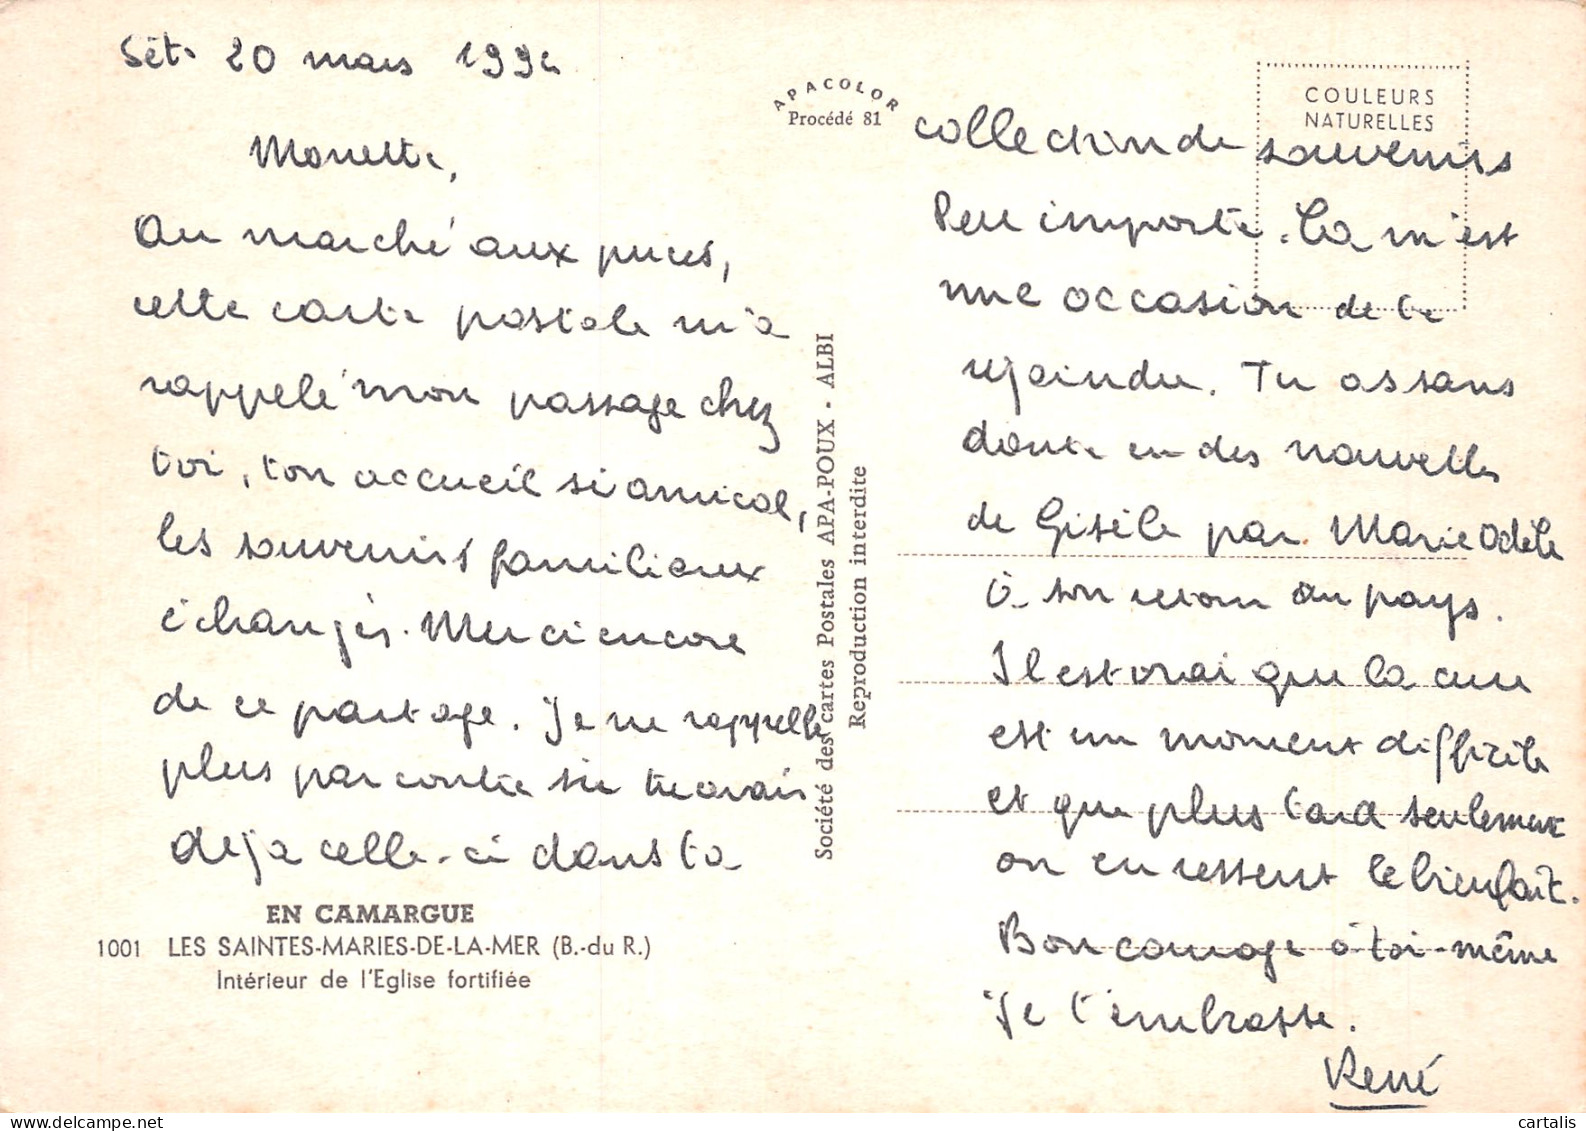 Sète 20 mars 199
Monette,
Au marché aux puces,
cette carte postale m'a
rappelé mon passage chez
toi, ton accueil si amical,
les souvenirs familiaux
échangés. Merci encore
de ce partage. Je ne rappelle
plus par contre si tu avais
déjà celle-ci dans ta
EN CAMARGUE
1001 LES SAINTES-MARIES-DE-LA-MER (B.-du R.)
Intérieur de l'Eglise fortifiée
APACOLOR
Procédé 81
Société des cartes Postales APA-POUX - ALBI
Reproduction interdite
COULEURS
NATURELLES
collection de souvenirs
Peu importe. Ça m'est
une occasion de te
rejoindre. Tu as sans
doute eu des nouvelles
de Gisèle par Marie Odèle
à son retour au pays.
Il est vrai que la cure
est un moment difficile
et que plus tard seulement
on en ressent le bienfait.
Bon courage à toi-même
Je t'embrasse.
René
cartalis